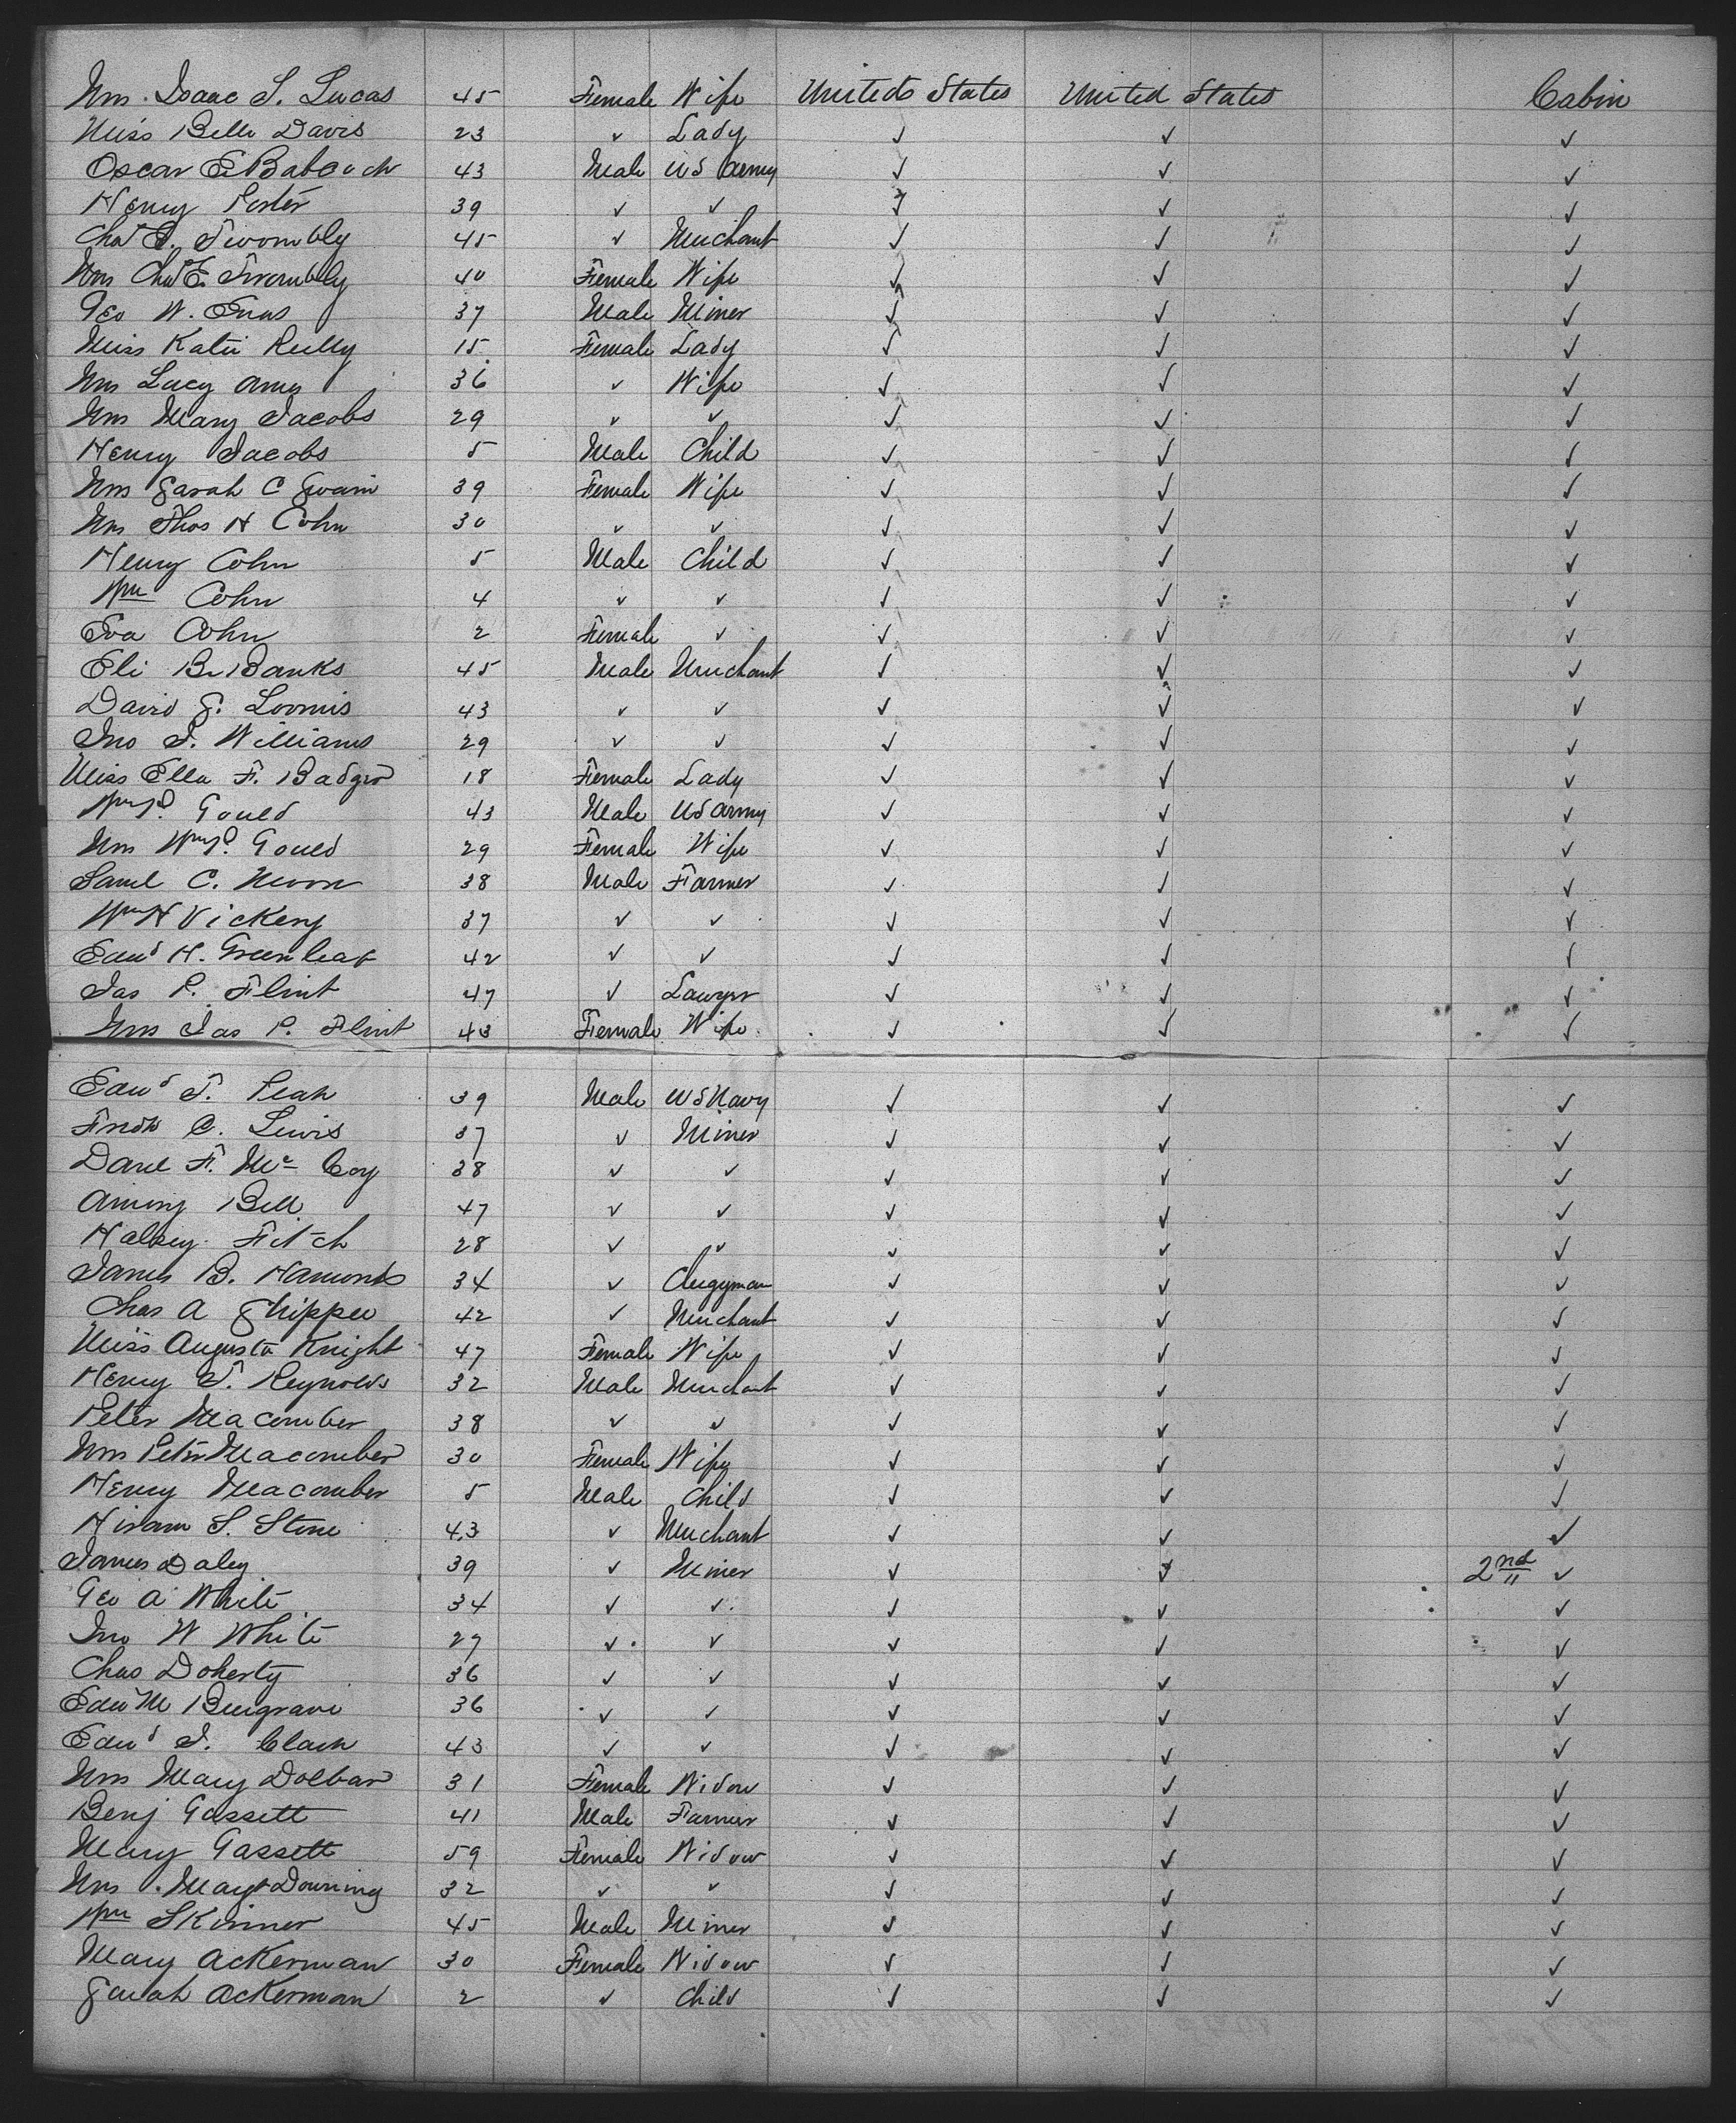 Mrs. Isaac S. Lucas 45 Female Wife United States United States Cabin
Miss Belle Davis 23 ✓ Lady ✓ ✓ ✓
Oscar E Babcock 43 Male US Army ✓ ✓ ✓
Henry Porter 39 ✓ ✓ ✓ ✓ ✓
Chas E. Twombly 45 ✓ Merchant ✓ ✓ ✓
Mrs Chas E. Twombly 40 Female Wife ✓ ✓ ✓
Geo W. 37 Male Miner ✓ ✓ ✓
Miss Katie Reilly 15 Female Lady ✓ ✓ ✓
Mrs Lucy Ames 36 ✓ Wife ✓ ✓ ✓
Mrs Mary Jacobs 29 ✓ ✓ ✓ ✓ ✓
Henry Jacobs 5 Male Child ✓ ✓ ✓
Mrs Sarah C Swain 39 Female Wife ✓ ✓ ✓
Mrs Thos H Cohn 30 ✓ ✓ ✓ ✓ ✓
Henry Cohn 5 Male Child ✓ ✓ ✓
Wm Cohn 4 ✓ ✓ ✓ ✓ ✓
Eva Cohn 2 Female ✓ ✓ ✓ ✓
Eli B. Banks 45 Male Merchant ✓ ✓ ✓
David S. Loomis 43 ✓ ✓ ✓ ✓ ✓
Jno T. Williams 29 ✓ ✓ ✓ ✓ ✓
Miss Ella F. Badger 18 Female Lady ✓ ✓ ✓
Wm P. Gould 43 Male US Army ✓ ✓ ✓
Mrs Wm P. Gould 29 Female Wife ✓ ✓ ✓
Saml C. Moon 38 Male Farmer ✓ ✓ ✓
Wm H Vickery 37 ✓ ✓ ✓ ✓ ✓
Edwd H. Greenleaf 42 ✓ ✓ ✓ ✓ ✓
Jas P. Flint 47 ✓ Lawyer ✓ ✓ ✓
Mrs Jas P. Flint 43 Female Wife ✓ ✓ ✓
Edwd T. Peak 39 Male US Navy ✓ ✓ ✓
Fredk C. Lewis 37 ✓ Miner ✓ ✓ ✓
Danl F. Mc Coy 38 ✓ ✓ ✓ ✓ ✓
Bell 47 ✓ ✓ ✓ ✓ ✓
Halsey Fitch 28 ✓ ✓ ✓ ✓ ✓
James B. Hamonds 34 ✓ Clergyman ✓ ✓ ✓
Chas A Shippee 42 ✓ Merchant ✓ ✓ ✓
Miss Augusta Knight 47 Female Wife ✓ ✓ ✓
Henry T. Reynolds 32 Male Merchant ✓ ✓ ✓
Peter Macomber 38 ✓ ✓ ✓ ✓ ✓
Mrs Peter Macomber 30 Female Wife ✓ ✓ ✓
Henry Macomber 5 Male Child ✓ ✓ ✓
Hiram S. Stone 43 ✓ Merchant ✓ ✓ ✓
James Daley 39 ✓ Miner ✓ ✓ 2nd ✓
Geo A White 34 ✓ ✓ ✓ ✓ ✓
Jno W White 27 ✓ ✓ ✓ ✓ ✓
Chas Doherty 36 ✓ ✓ ✓ ✓ ✓
Edw M 36 ✓ ✓ ✓ ✓ ✓
Edwd T. Clark 43 ✓ ✓ ✓ ✓ ✓
Mrs Mary Dolbar 31 Female Widow ✓ ✓ ✓
Benj Gassett 41 Male Farmer ✓ ✓ ✓
Mary Gassett 59 Female Widow ✓ ✓ ✓
Mrs. Mary Downing 32 ✓ ✓ ✓ ✓ ✓
Wm Skinner 45 Male Miner ✓ ✓ ✓
Mary Ackerman 30 Female Widow ✓ ✓ ✓
Sarah Ackerman 2 ✓ Child ✓ ✓ ✓